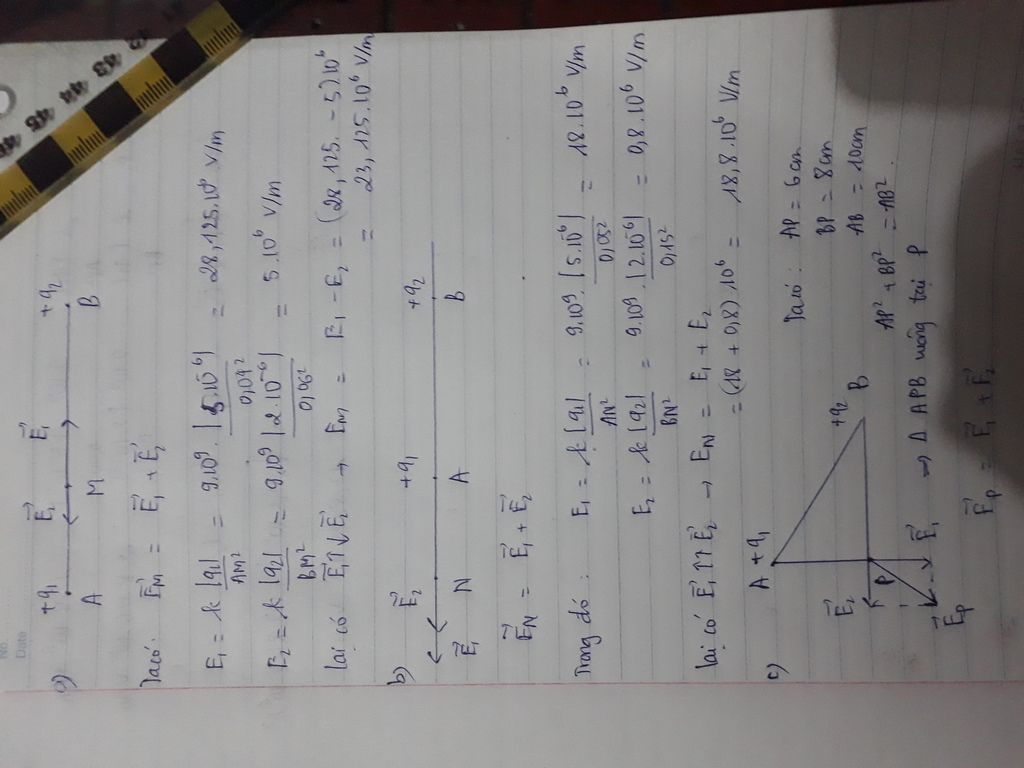 No.
Date
a)
+q₁ E₂⃗ E₁⃗ +q₂
A M B
Ta có: E⃗M = E₁⃗ + E₂⃗
E₁ = k |q₁|/AM² = 9.10⁹. |5.10⁻⁶|/0,04² = 28,125.10⁶ V/m
E₂ = k |q₂|/BM² = 9.10⁹ |2.10⁻⁶|/0,06² = 5.10⁶ V/m
Lại có E₁⃗ ↑↓ E₂⃗ → Em = E₁ - E₂ = (28,125. - 5) 10⁶
= 23,125.10⁶ V/m
b)
E₂⃗ +q₁ +q₂
E₁⃗ N A B
E⃗N = E₁⃗ + E₂⃗
Trong đó: E₁ = k |q₁|/AN² = 9.10⁹. |5.10⁻⁶|/0,05² = 18.10⁶ V/m
E₂ = k |q₂|/BN² = 9.10⁹. |2.10⁻⁶|/0,15² = 0,8.10⁶ V/m
Lại có E₁⃗ ↑↑ E₂⃗ → EN = E₁ + E₂
= (18 + 0,8).10⁶ = 18,8.10⁶ V/m
c)
A +q₁
Ta có: AP = 6cm
BP = 8cm
AB = 10cm
+q₂ B
E₂⃗
P
AP² + BP² = AB².
E₁⃗ → Δ APB vuông tại P
E⃗P
E⃗P = E₁⃗ + E₂⃗
43 44 45